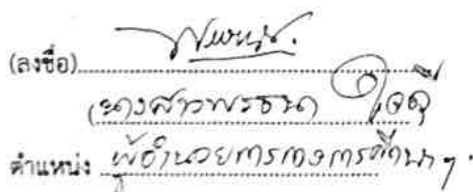 (ลงชื่อ)
(นางสาวพรธนา ใจดี
ตำแหน่ง ผู้อำนวยการกองการศึกษาฯ